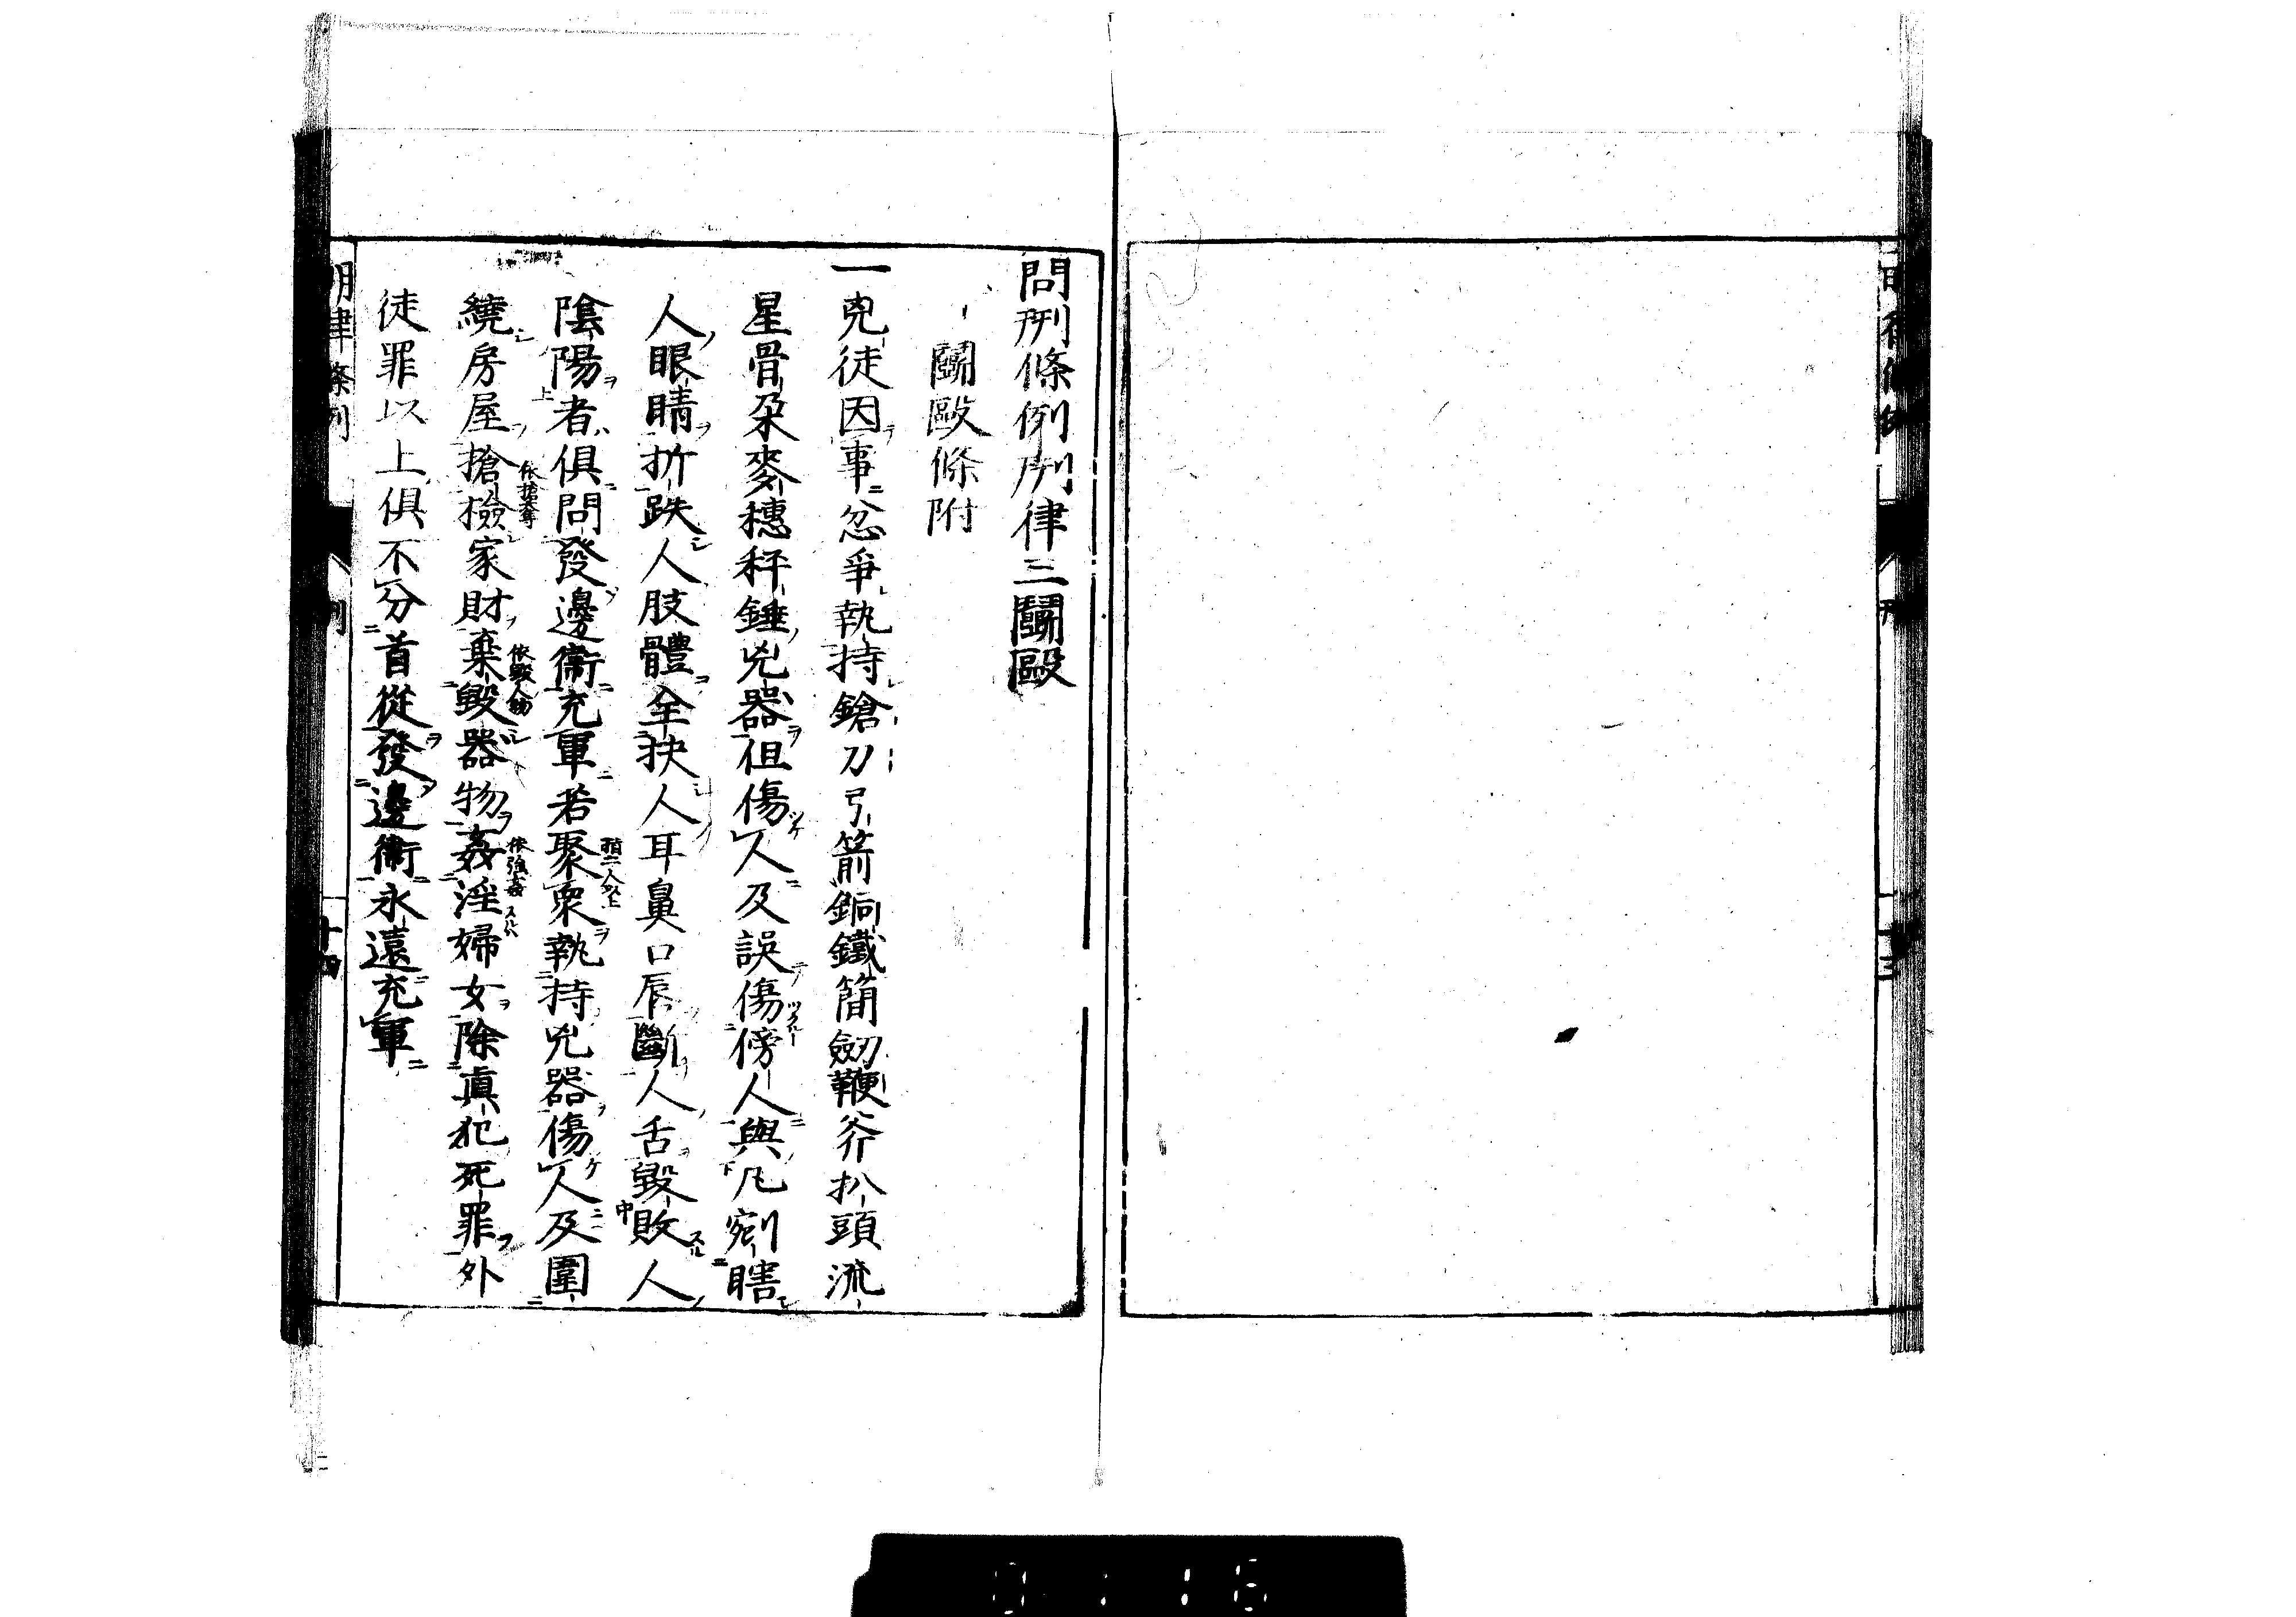 問刑條例刑律三鬭毆
鬭毆條附
一兇徒因事忿爭執持鎗刀弓箭銅鐵簡劒鞭斧扒頭流
星骨朶麥穗秤錘兇器但傷人及誤傷傍人與凡剜瞎
人眼睛折跌人肢體全抉人耳鼻口唇斷人舌毀敗人
陰陽者俱問發邊衞充軍若聚衆執持兇器傷人及圍
指二人以上
繞房屋搶檢家財棄毀器物姦淫婦女除眞犯死罪外
依搶奪
依毀人物
依強姦スルハ
徒罪以上俱不分首從發邊衞永遠充軍
明律條例
例
十四
0116